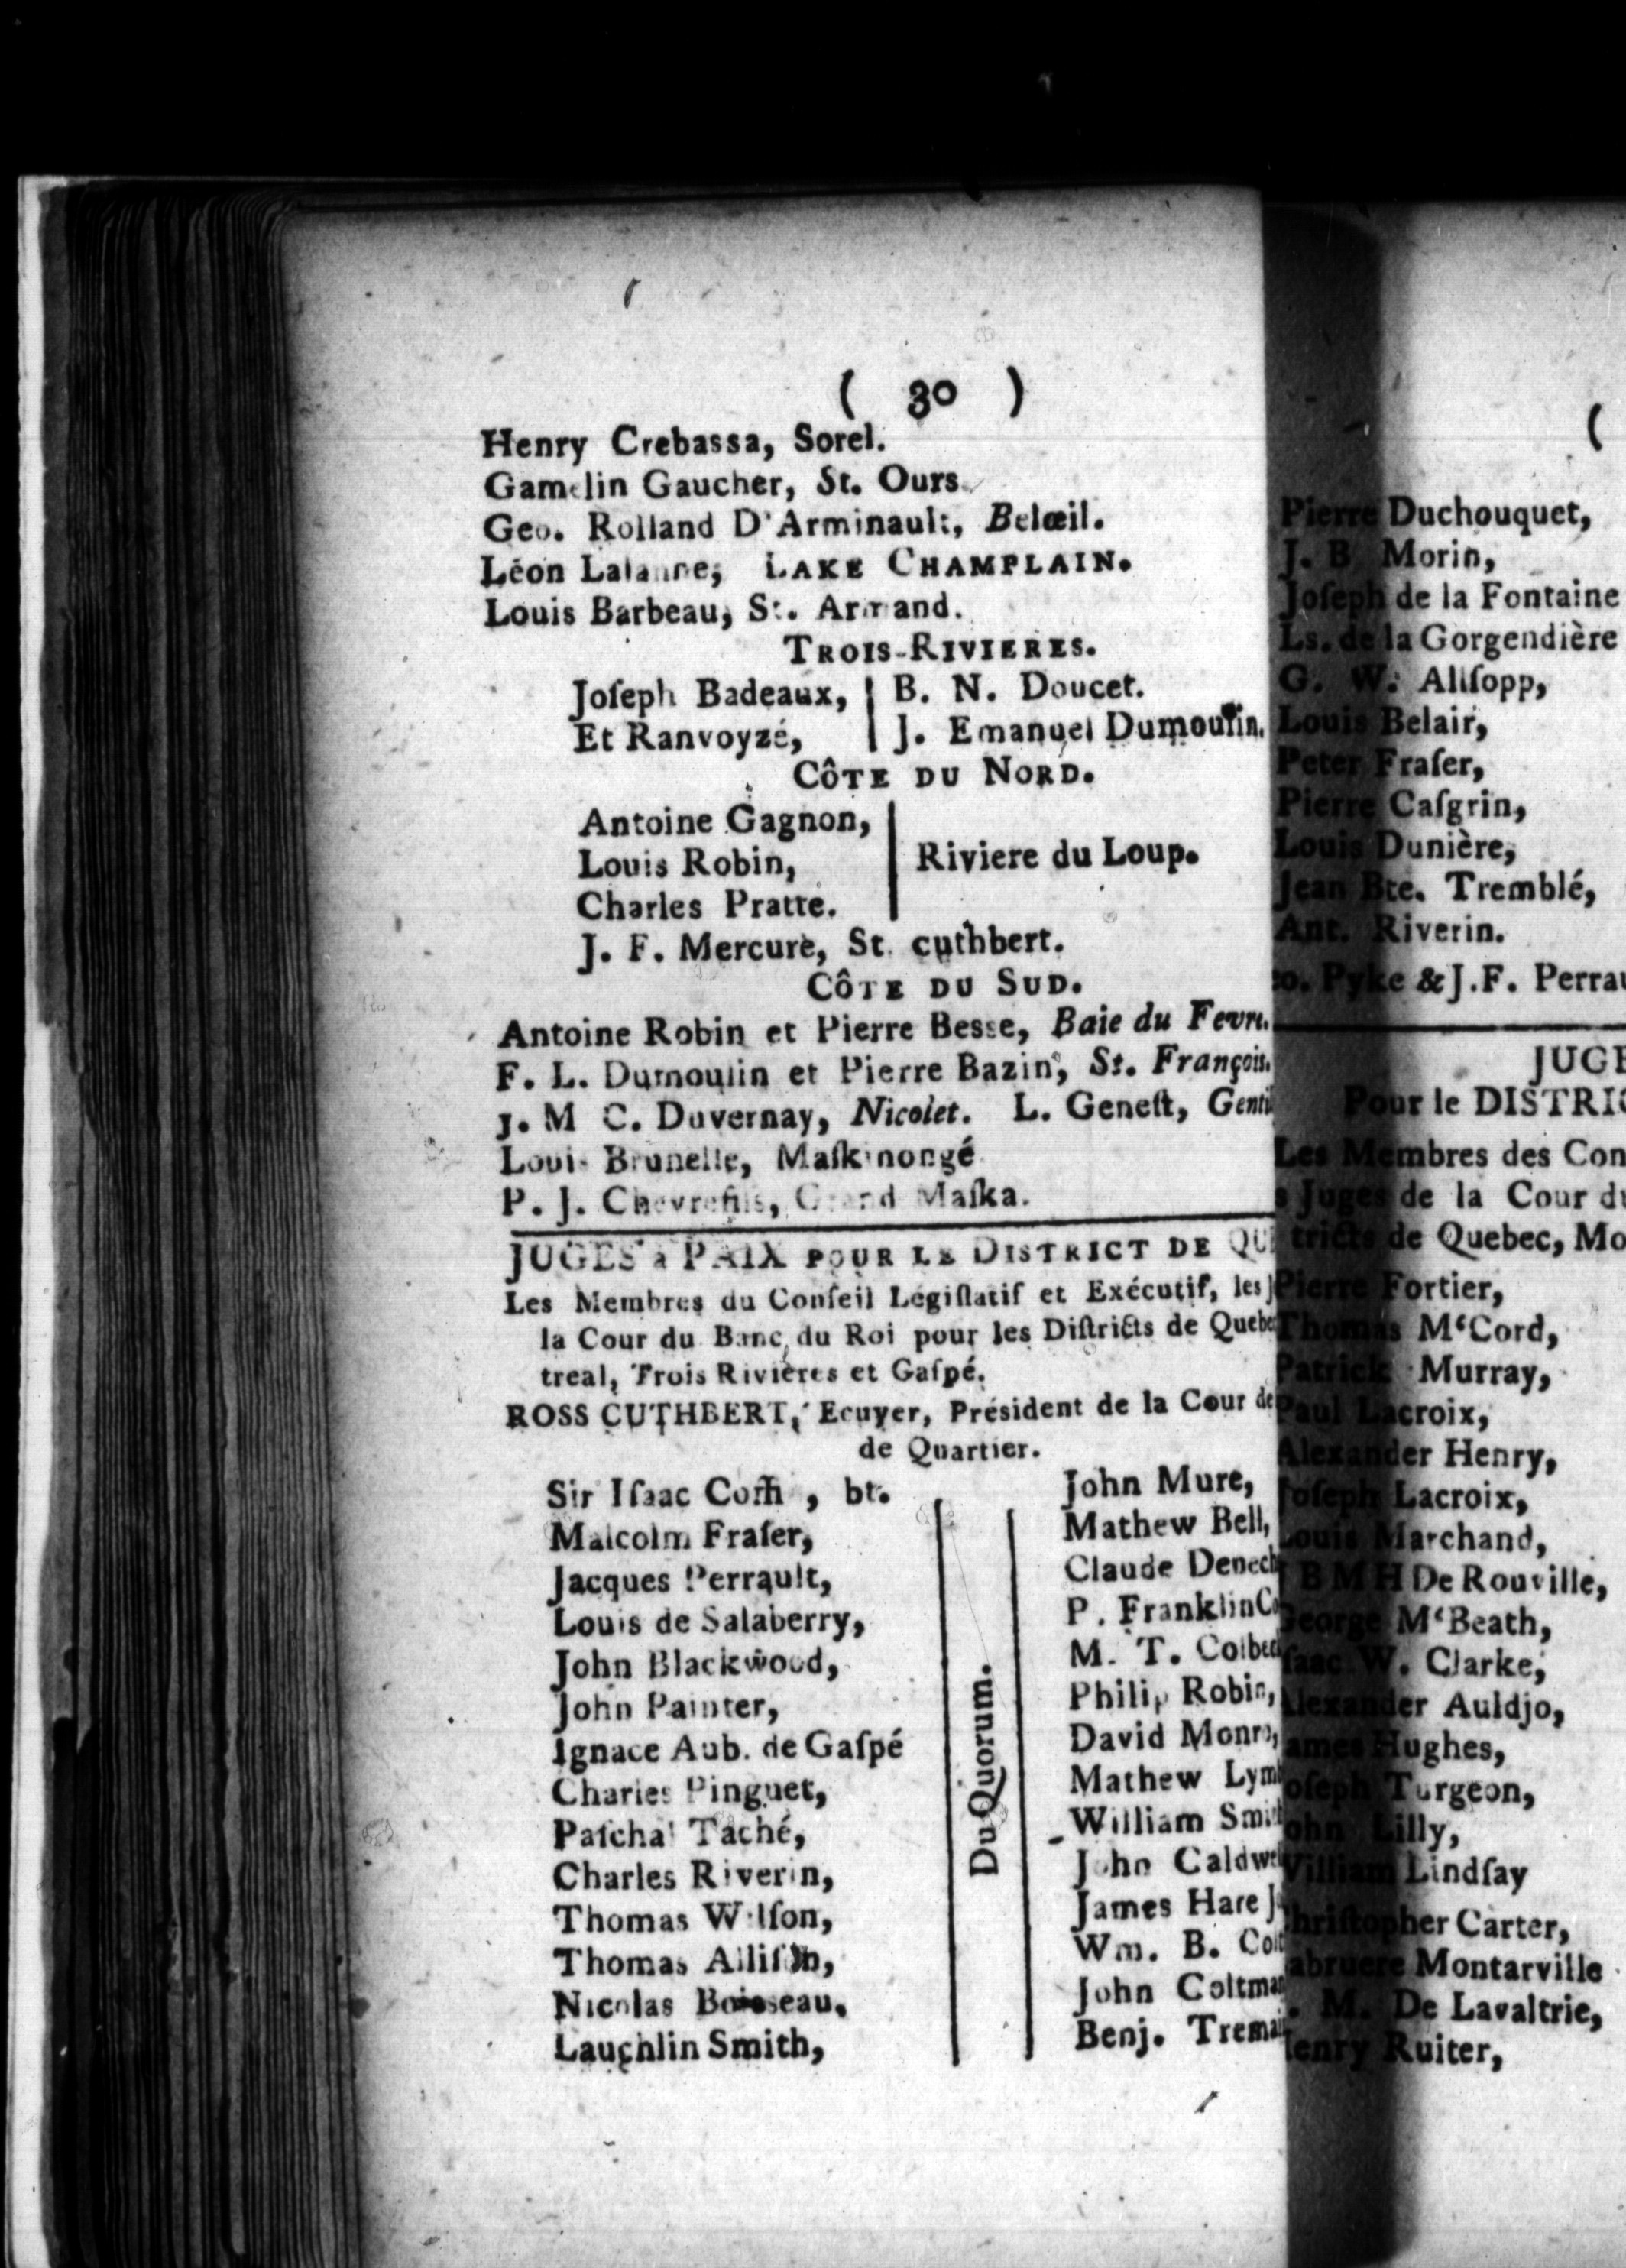 ( 30 )
Henry Crebassa, Sorel.
Gamelin Gaucher, St. Ours.
Geo. Rolland D'Arminault, Belœil.
Léon Lalanne, LAKE CHAMPLAIN.
Louis Barbeau, St. Armand.
TROIS-RIVIERES.
Joſeph Badeaux, | B. N. Doucet.
Et Ranvoyzé, | J. Emanuel Dumoulin.
CÔTE DU NORD.
Antoine Gagnon,
Louis Robin, Riviere du Loup.
Charles Pratte.
J. F. Mercure, St. cuthbert.
CÔTE DU SUD.
Antoine Robin et Pierre Besse, Baie du Fevre.
F. L. Dumoulin et Pierre Bazin, St. François.
J. M C. Duvernay, Nicolet. L. Geneſt, Genti
Louis Brunelle, Maſkinongé
P. J. Chevrefils, Grand Maſka.
JUGES à PAIX POUR LE DISTRICT DE QU
Les Membres du Conſeil Légiſlatif et Exécutif, les J
la Cour du Banc du Roi pour les Diſtricts de Quebe
treal, Trois Rivières et Gaſpé.
ROSS CUTHBERT, Ecuyer, Président de la Cour de
de Quartier.
Sir Iſaac , bt.
Malcolm Fraſer,
Jacques Perrault,
Louis de Salaberry,
John Blackwood,
John Painter,
Ignace Aub. de Gaſpé
Charles Pinguet,
Paſchal Taché,
Charles Riverin,
Thomas Wilſon,
Thomas Alliſon,
Nicolas Boisseau,
Lauchlin Smith,
Du Quorum.
John Mure,
Mathew Bell,
Claude Denech
P. Franklin Co
M. T. Colbec
Philip Robin,
David Monro,
Mathew Lym
William Smi
John Caldwe
James Hare J
Wm. B. Colt
John Coltman
Benj. Tremai
(
Pierre Duchouquet,
J. B Morin,
Joſeph de la Fontaine
Ls. de la Gorgendière
G. W. Allſopp,
Louis Belair,
Peter Fraſer,
Pierre Caſgrin,
Louis Dunière,
Jean Bte. Tremblé,
Ant. Riverin.
o. Pyke & J.F. Perrau
JUGE
Pour le DISTRIC
Les Membres des Con
s Juges de la Cour du
tricts de Quebec, Mo
Pierre Fortier,
Thomas McCord,
Patrick Murray,
Paul Lacroix,
Alexander Henry,
Joſeph Lacroix,
Louis Marchand,
B M H De Rouville,
George McBeath,
Iſaac W. Clarke,
Alexander Auldjo,
James Hughes,
Joſeph Turgeon,
John Lilly,
William Lindſay
Chriſtopher Carter,
Labruere Montarville
. M. De Lavaltrie,
Henry Ruiter,